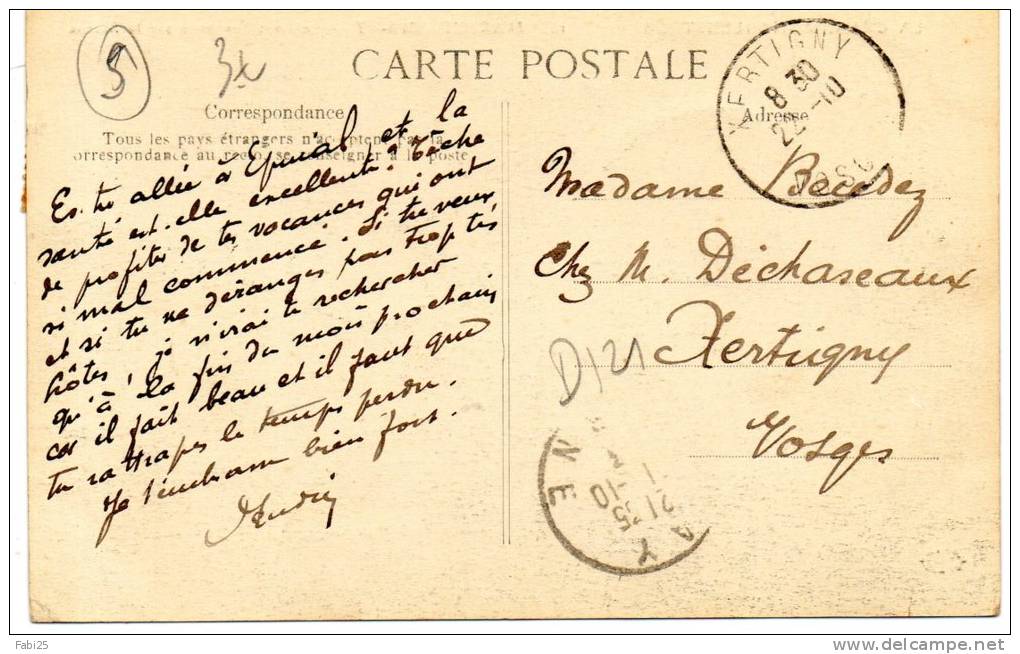 CARTE POSTALE
5
3x
Correspondance
Tous les pays étrangers n'acceptent pas la
correspondance au recto, se renseigner à la poste
Es-tu allée à Epinal et la
santé est-elle excellente? Tâche
de profiter de tes vacances qui ont
si mal commencé. Si tu veux
et si tu ne déranges pas trop tes
hôtes, je n'irai te rechercher
qu'à la fin du mois prochain
car il fait beau et il faut que
tu rattrapes le temps perdu.
Je t'embrasse bien fort.
Adresse
XERTIGNY
8 30
10
VOSGES
Madame
Chez M. Déchaseaux
Xertigny
Vosges
D121
NE
21 35
10